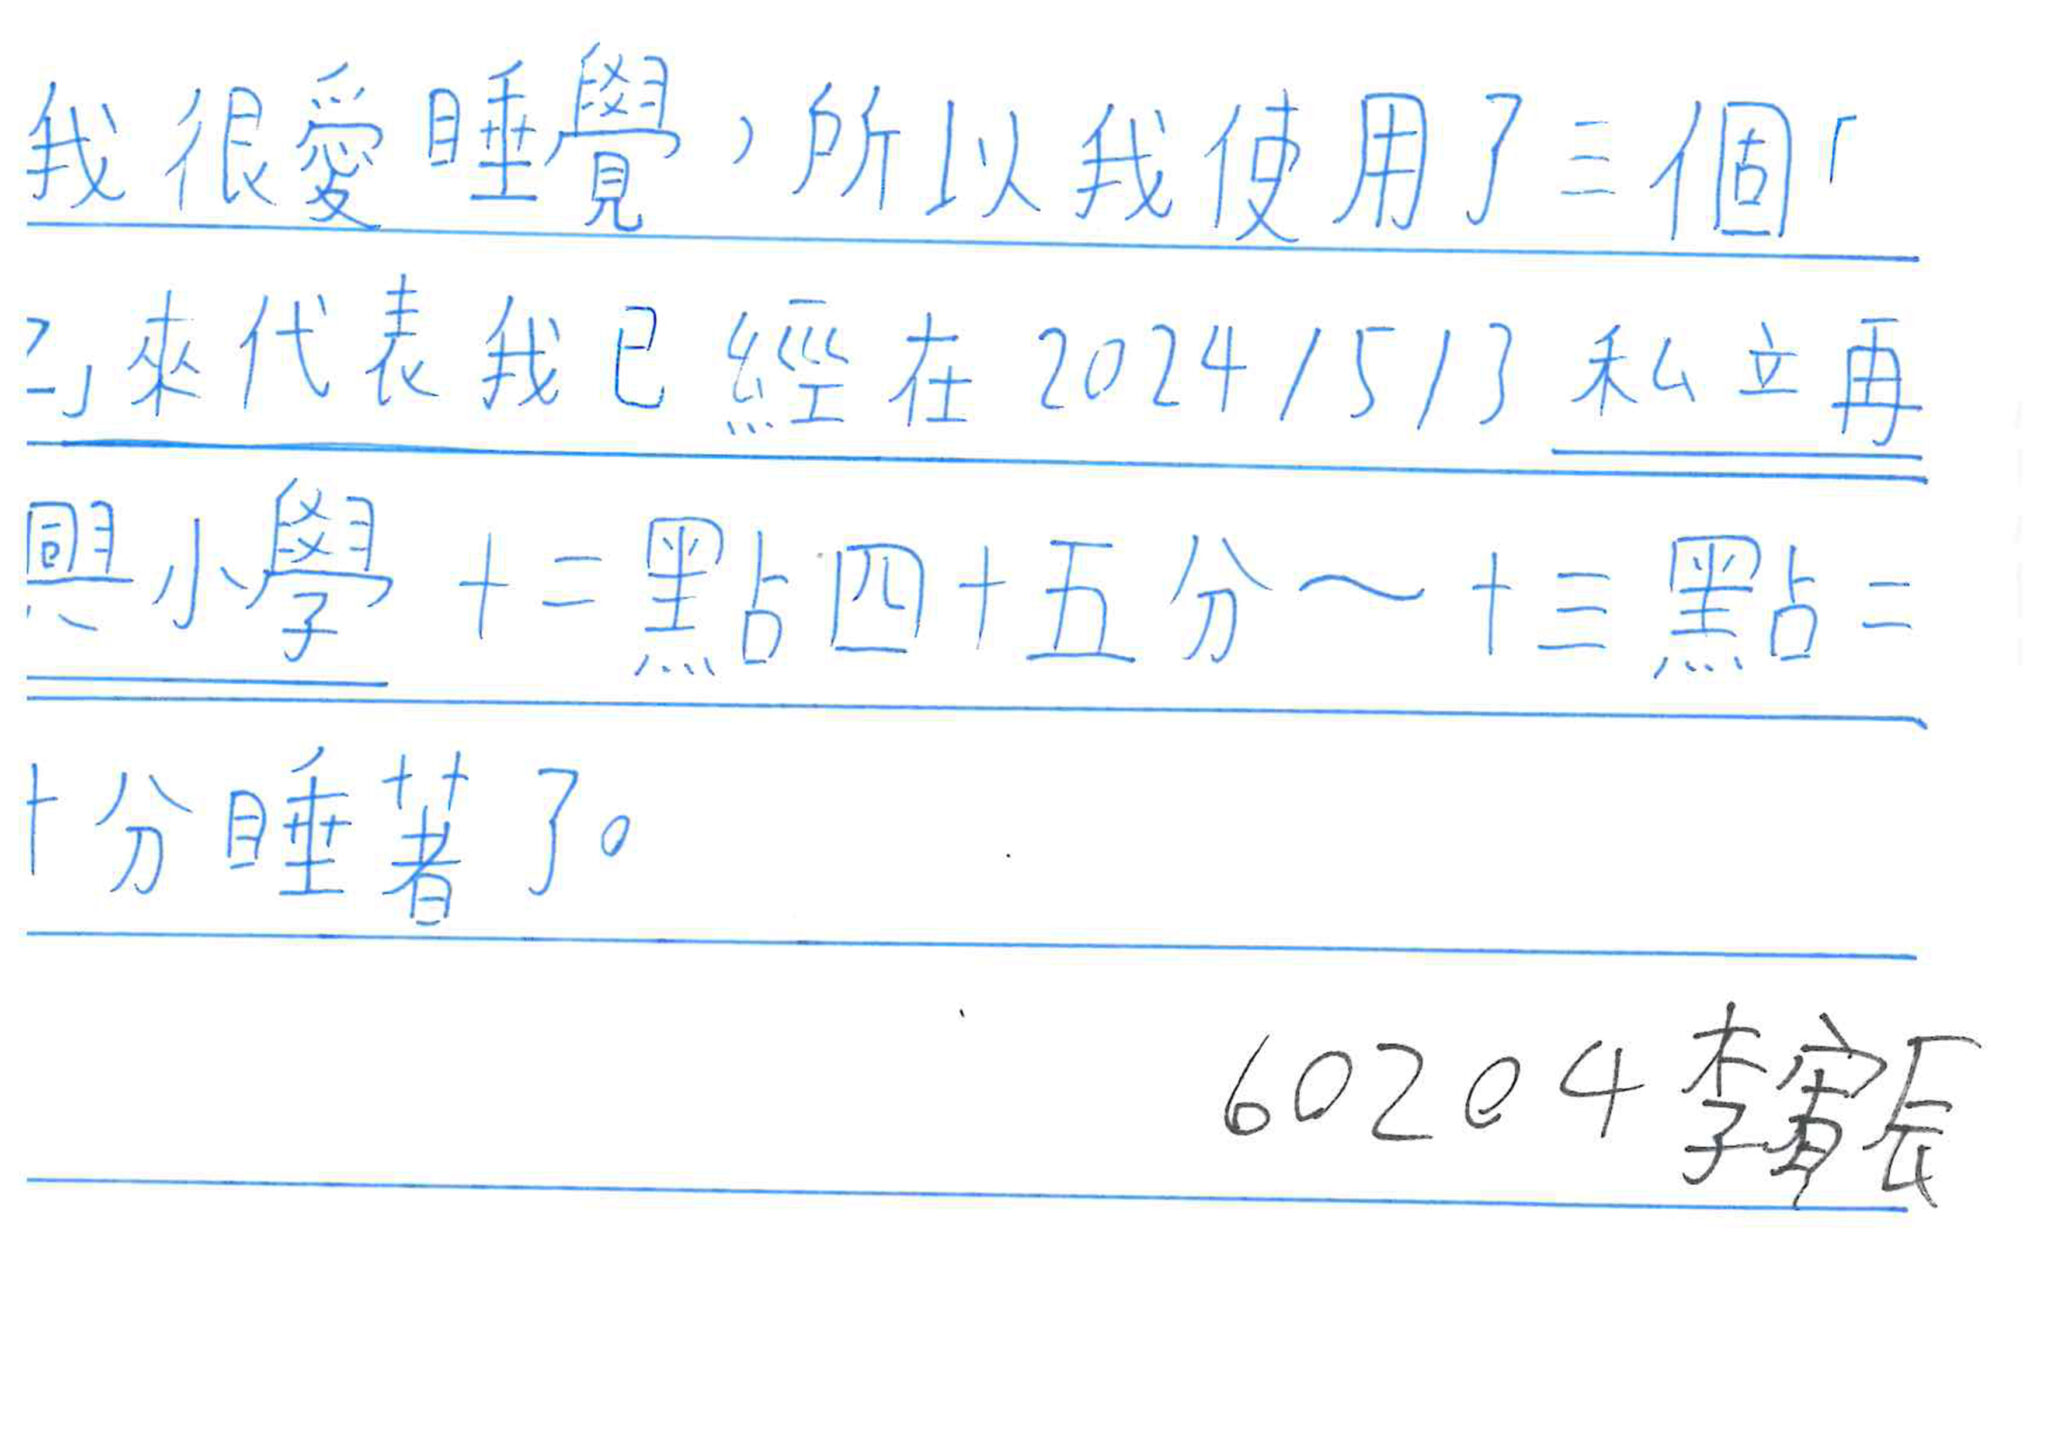 我很愛睡覺，所以我使用了三個「
Z」來代表我已經在2024/5/3私立再
興小學十二點四十五分～十三點二
十分睡著了。
60204李